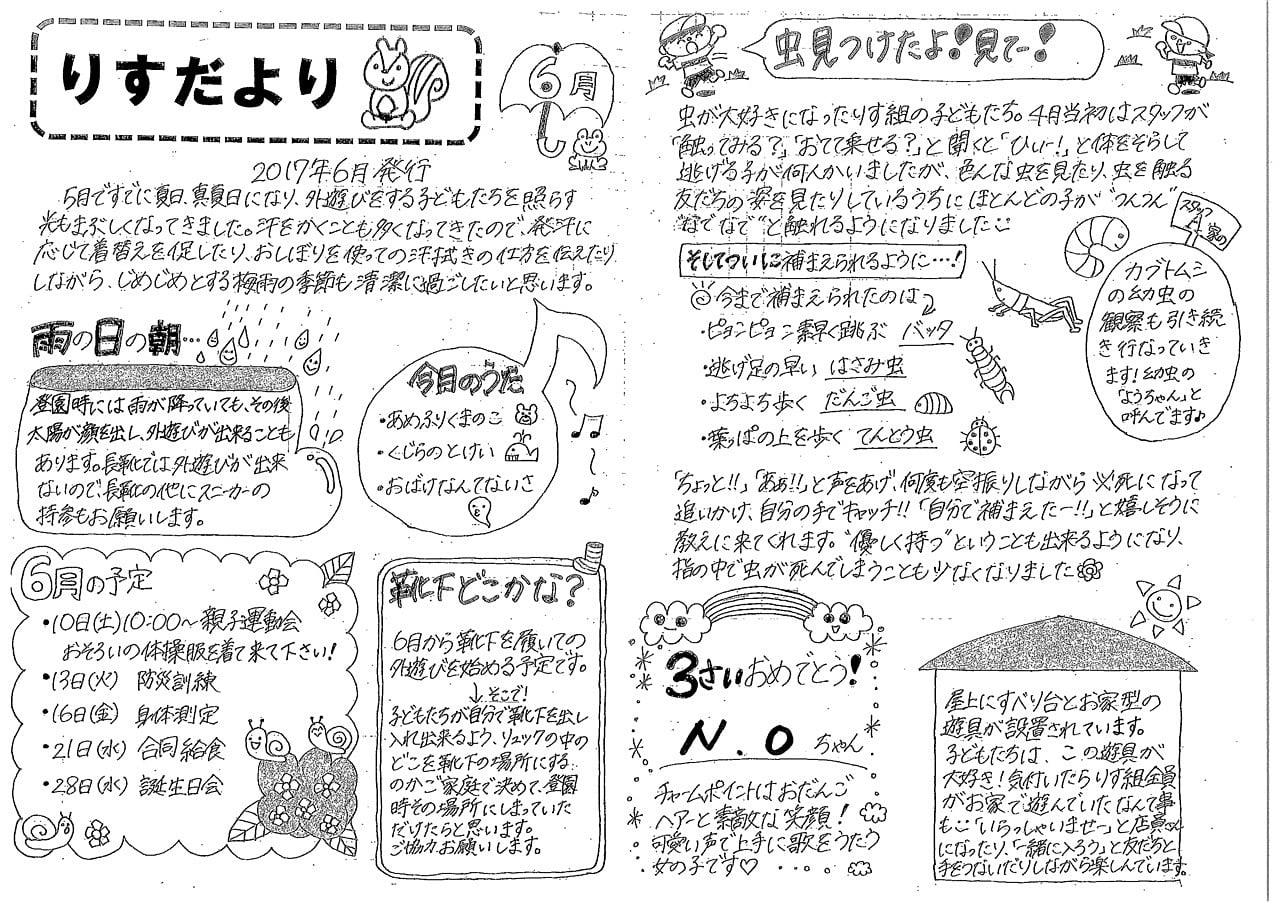 りすだより
6月
2017年6月発行
5月ですでに夏日、真夏日になり、外遊びをする子どもたちを照らす
光もまぶしくなってきました。汗をかくことも多くなってきたので、発汗に
応じて着替えを促したり、おしぼりを使っての汗拭きの仕方を伝えたり
しながら、じめじめとする梅雨の季節も清潔に過ごしたいと思います。
雨の日の朝…
登園時には雨が降っていても、その後
太陽が顔を出し、外遊びが出来ることも
あります。長靴では外遊びが出来
ないので、長靴の他にスニーカーの
持参もお願いします。
今月のうた
・あめふりくまのこ
・くじらのとけい
・おばけなんてないさ
6月の予定
・10日(土)10:00〜親子運動会
おそろいの体操服を着て来て下さい!
・13日(火) 防災訓練
・16日(金) 身体測定
・21日(水) 合同給食
・28日(水) 誕生日会
靴下どこかな?
6月から靴下を履いての
外遊びを始める予定です。
↓そこで!
子どもたちが自分で靴下を出し
入れ出来るよう、リュックの中の
どこを靴下の場所にする
のかご家庭で決めて、登園
時その場所にしまっていた
だけたらと思います。
ご協力お願いします。
虫見つけたよ!見てー!
虫が大好きになったりす組の子どもたち。4月当初はスタッフが
「触ってみる?」「おてて乗せる?」と聞くと「ひぃー!」と体をそらして
逃げる子が何人かいましたが、色んな虫を見たり、虫を触る
友だちの姿を見たりしているうちにほとんどの子が"つんつん"
"なでなで"と触れるようになりました
そしてついに補まえられるように…!
今まで補まえられたのは
・ピョンピョン素早く跳ぶ バッタ
・逃げ足の早い はさみ虫
・よちよち歩く だんご虫
・葉っぱの上を歩く てんとう虫
スタッフ
家の
カブトムシ
の幼虫の
観察も引き続
き行なっていき
ます!幼虫の
「ようちゃん」と
呼んでます♪
「ちょっと!!」「あぁ!!」と声をあげ、何度も空振りしながら必死になって
追いかけ、自分の手でキャッチ!!「自分で補まえたー!!」と嬉しそうに
教えに来てくれます。"優しく持つ"ということも出来るようになり、
指の中で虫が死んでしまうことも少なくなりました
3さいおめでとう!
N.Oちゃん
チャームポイントはおだんご
ヘアーと素敵な笑顔!
可愛い声で上手に歌をうたう
女の子です♡
屋上にすべり台とお家型の
遊具が設置されています。
子どもたちは、この遊具が
大好き!気付いたらりす組全員
がお家で遊んでいたなんて事
も。「いらっしゃいませー」と店員さん
になったり、「一緒に入ろう」と友だちと
手をつないだりしながら楽しんでいます。